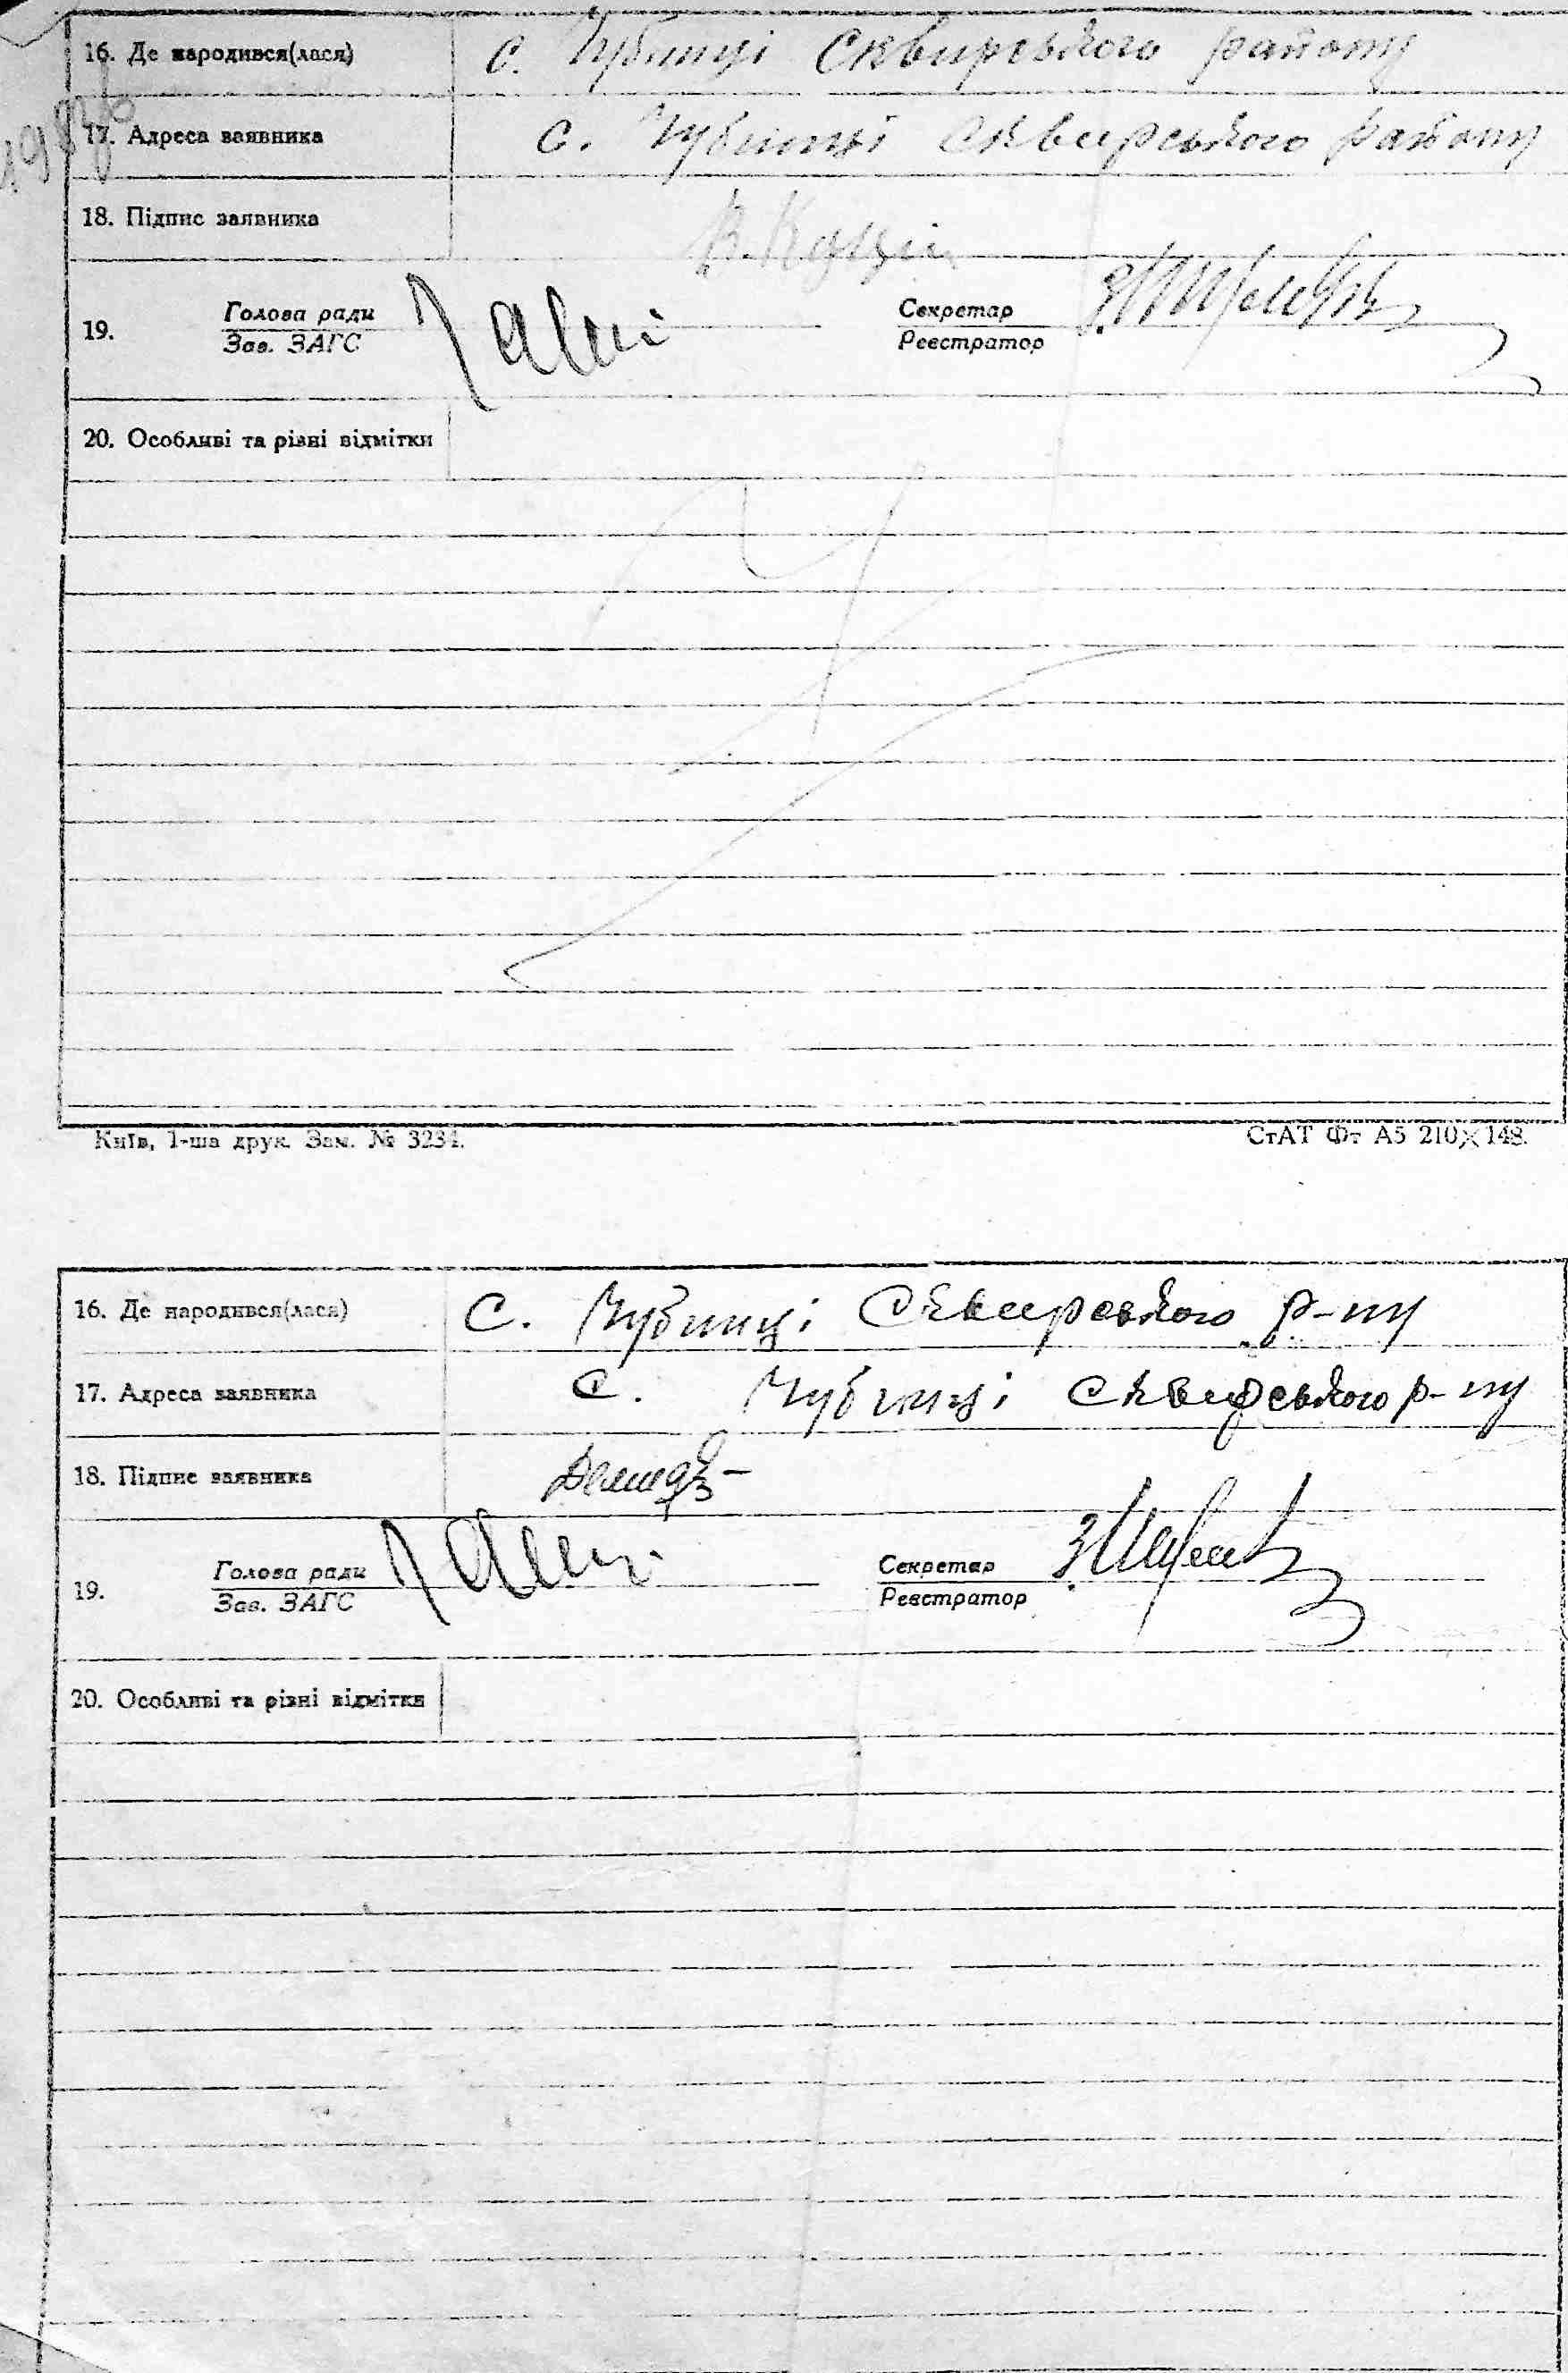 16. Де народився(лася) с. Чубинці Сквирського району
17. Адреса заявника с. Чубинці Сквирського району
18. Підпис заявника
19. Голова ради Секретар
Зав. ЗАГС Реєстратор
20. Особливі та різні відмітки
Київ, 1-ша друк. Зам. № 3234. СтАТ Фт А5 210×148.
16. Де народився(лася) с. Чубинці Сквирського р-ну
17. Адреса заявника с. Чубинці Сквирського р-ну
18. Підпис заявника
19. Голова ради Секретар
Зав. ЗАГС Реєстратор
20. Особливі та різні відмітки